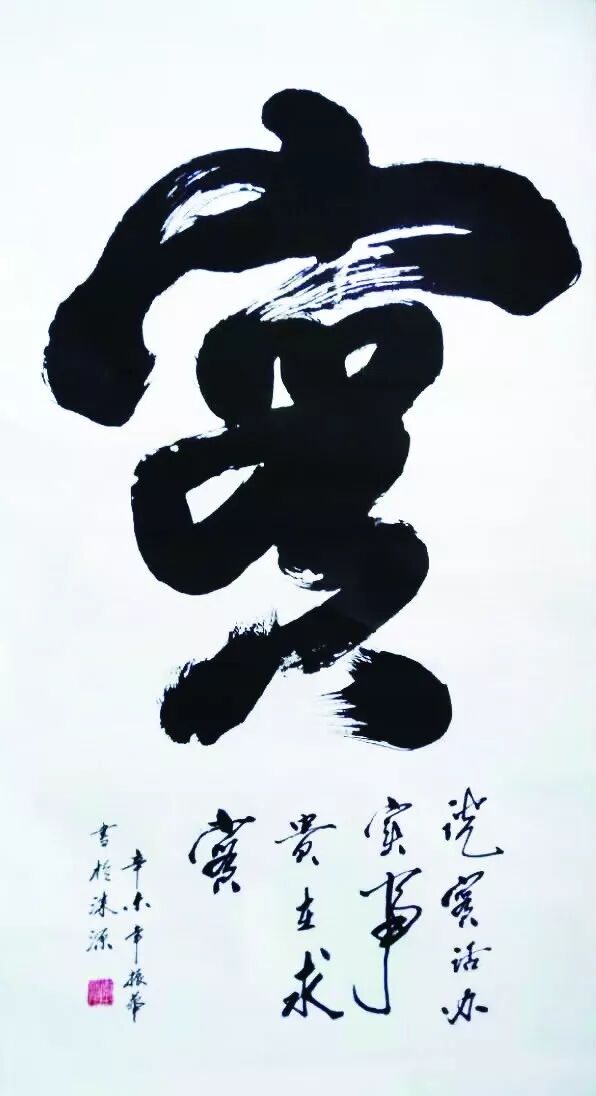 實
说實话办
实事
貴在求
實
辛未年振華
書於涞源